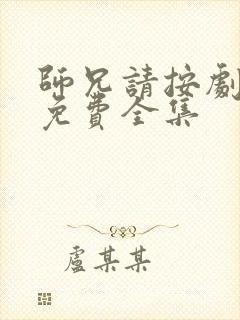 師兄請按劇
免費全集
盧某某